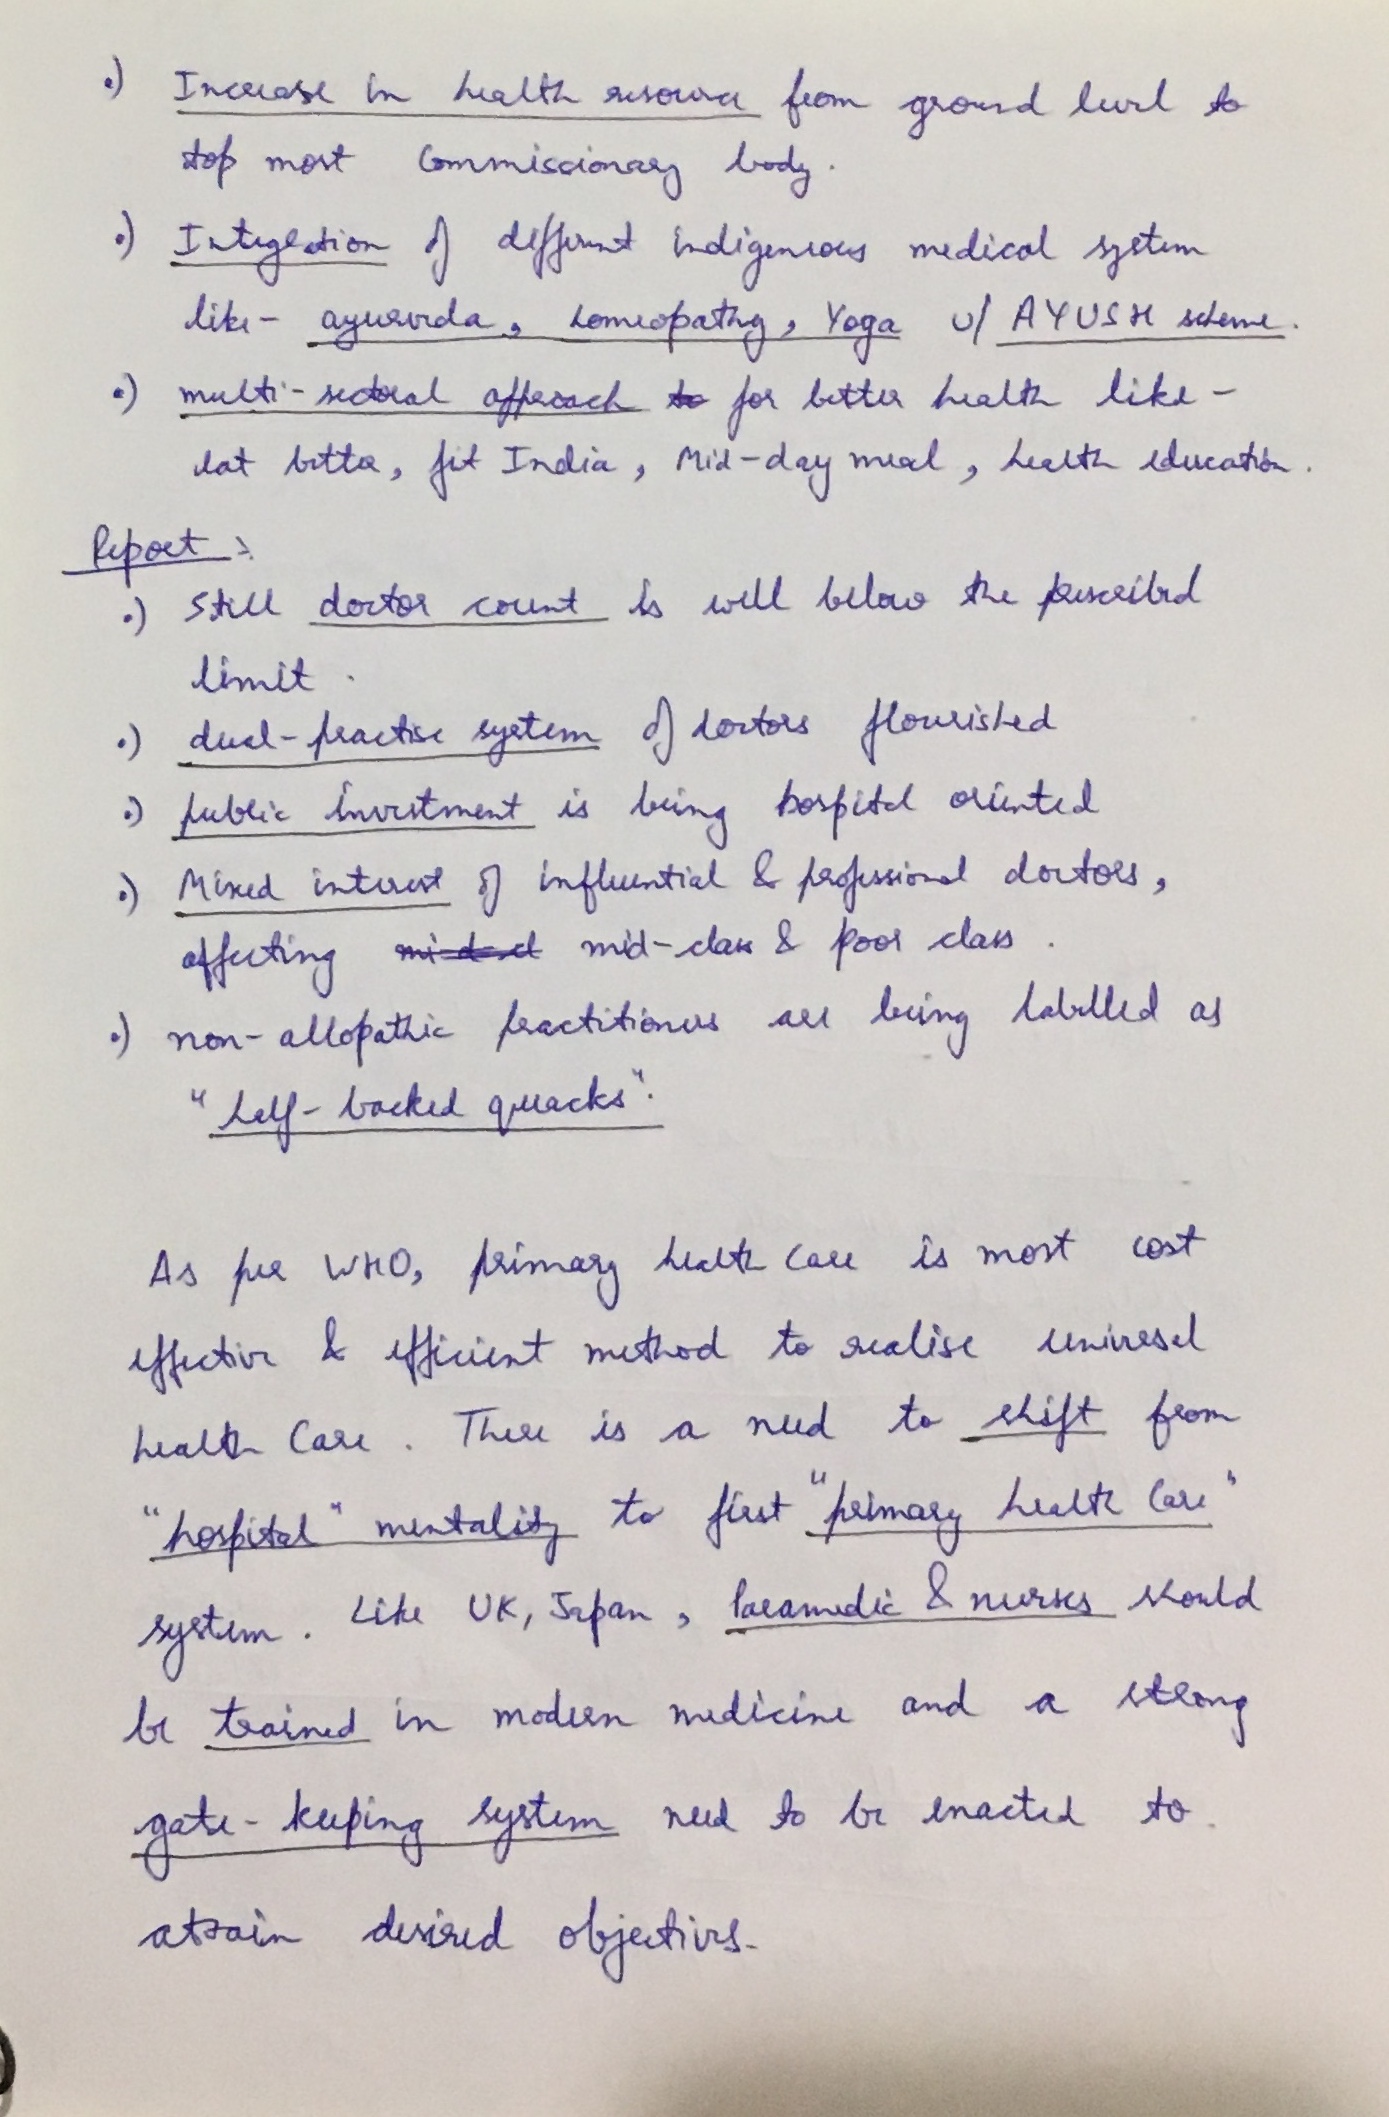 •) Increase in health resource from ground level to
top most Commissionary body.
•) Integration of different indigenious medical system
like- ayurveda, homeopathy, Yoga u/ AYUSH scheme.
•) multi-sectoral approach to for better health like -
eat better, fit India, Mid-day meal, health education.
Report :-
•) Still doctor count is well below the prescribed
limit.
•) dual-practise system of doctors flourished
•) public investment is being hospital oriented
•) Mixed interest of influential & professional doctors,
affecting mid-class & poor class.
•) non-allopathic practitioners are being labelled as
"half-backed quacks".
As per WHO, primary health care is most cost
effective & efficient method to realise universal
health Care. There is a need to shift from
"hospital" mentality to first "primary health Care"
system. Like UK, Japan, Paramedic & nurses should
be trained in modern medicine and a strong
gate-keeping system need to be enacted to
attain desired objectives.